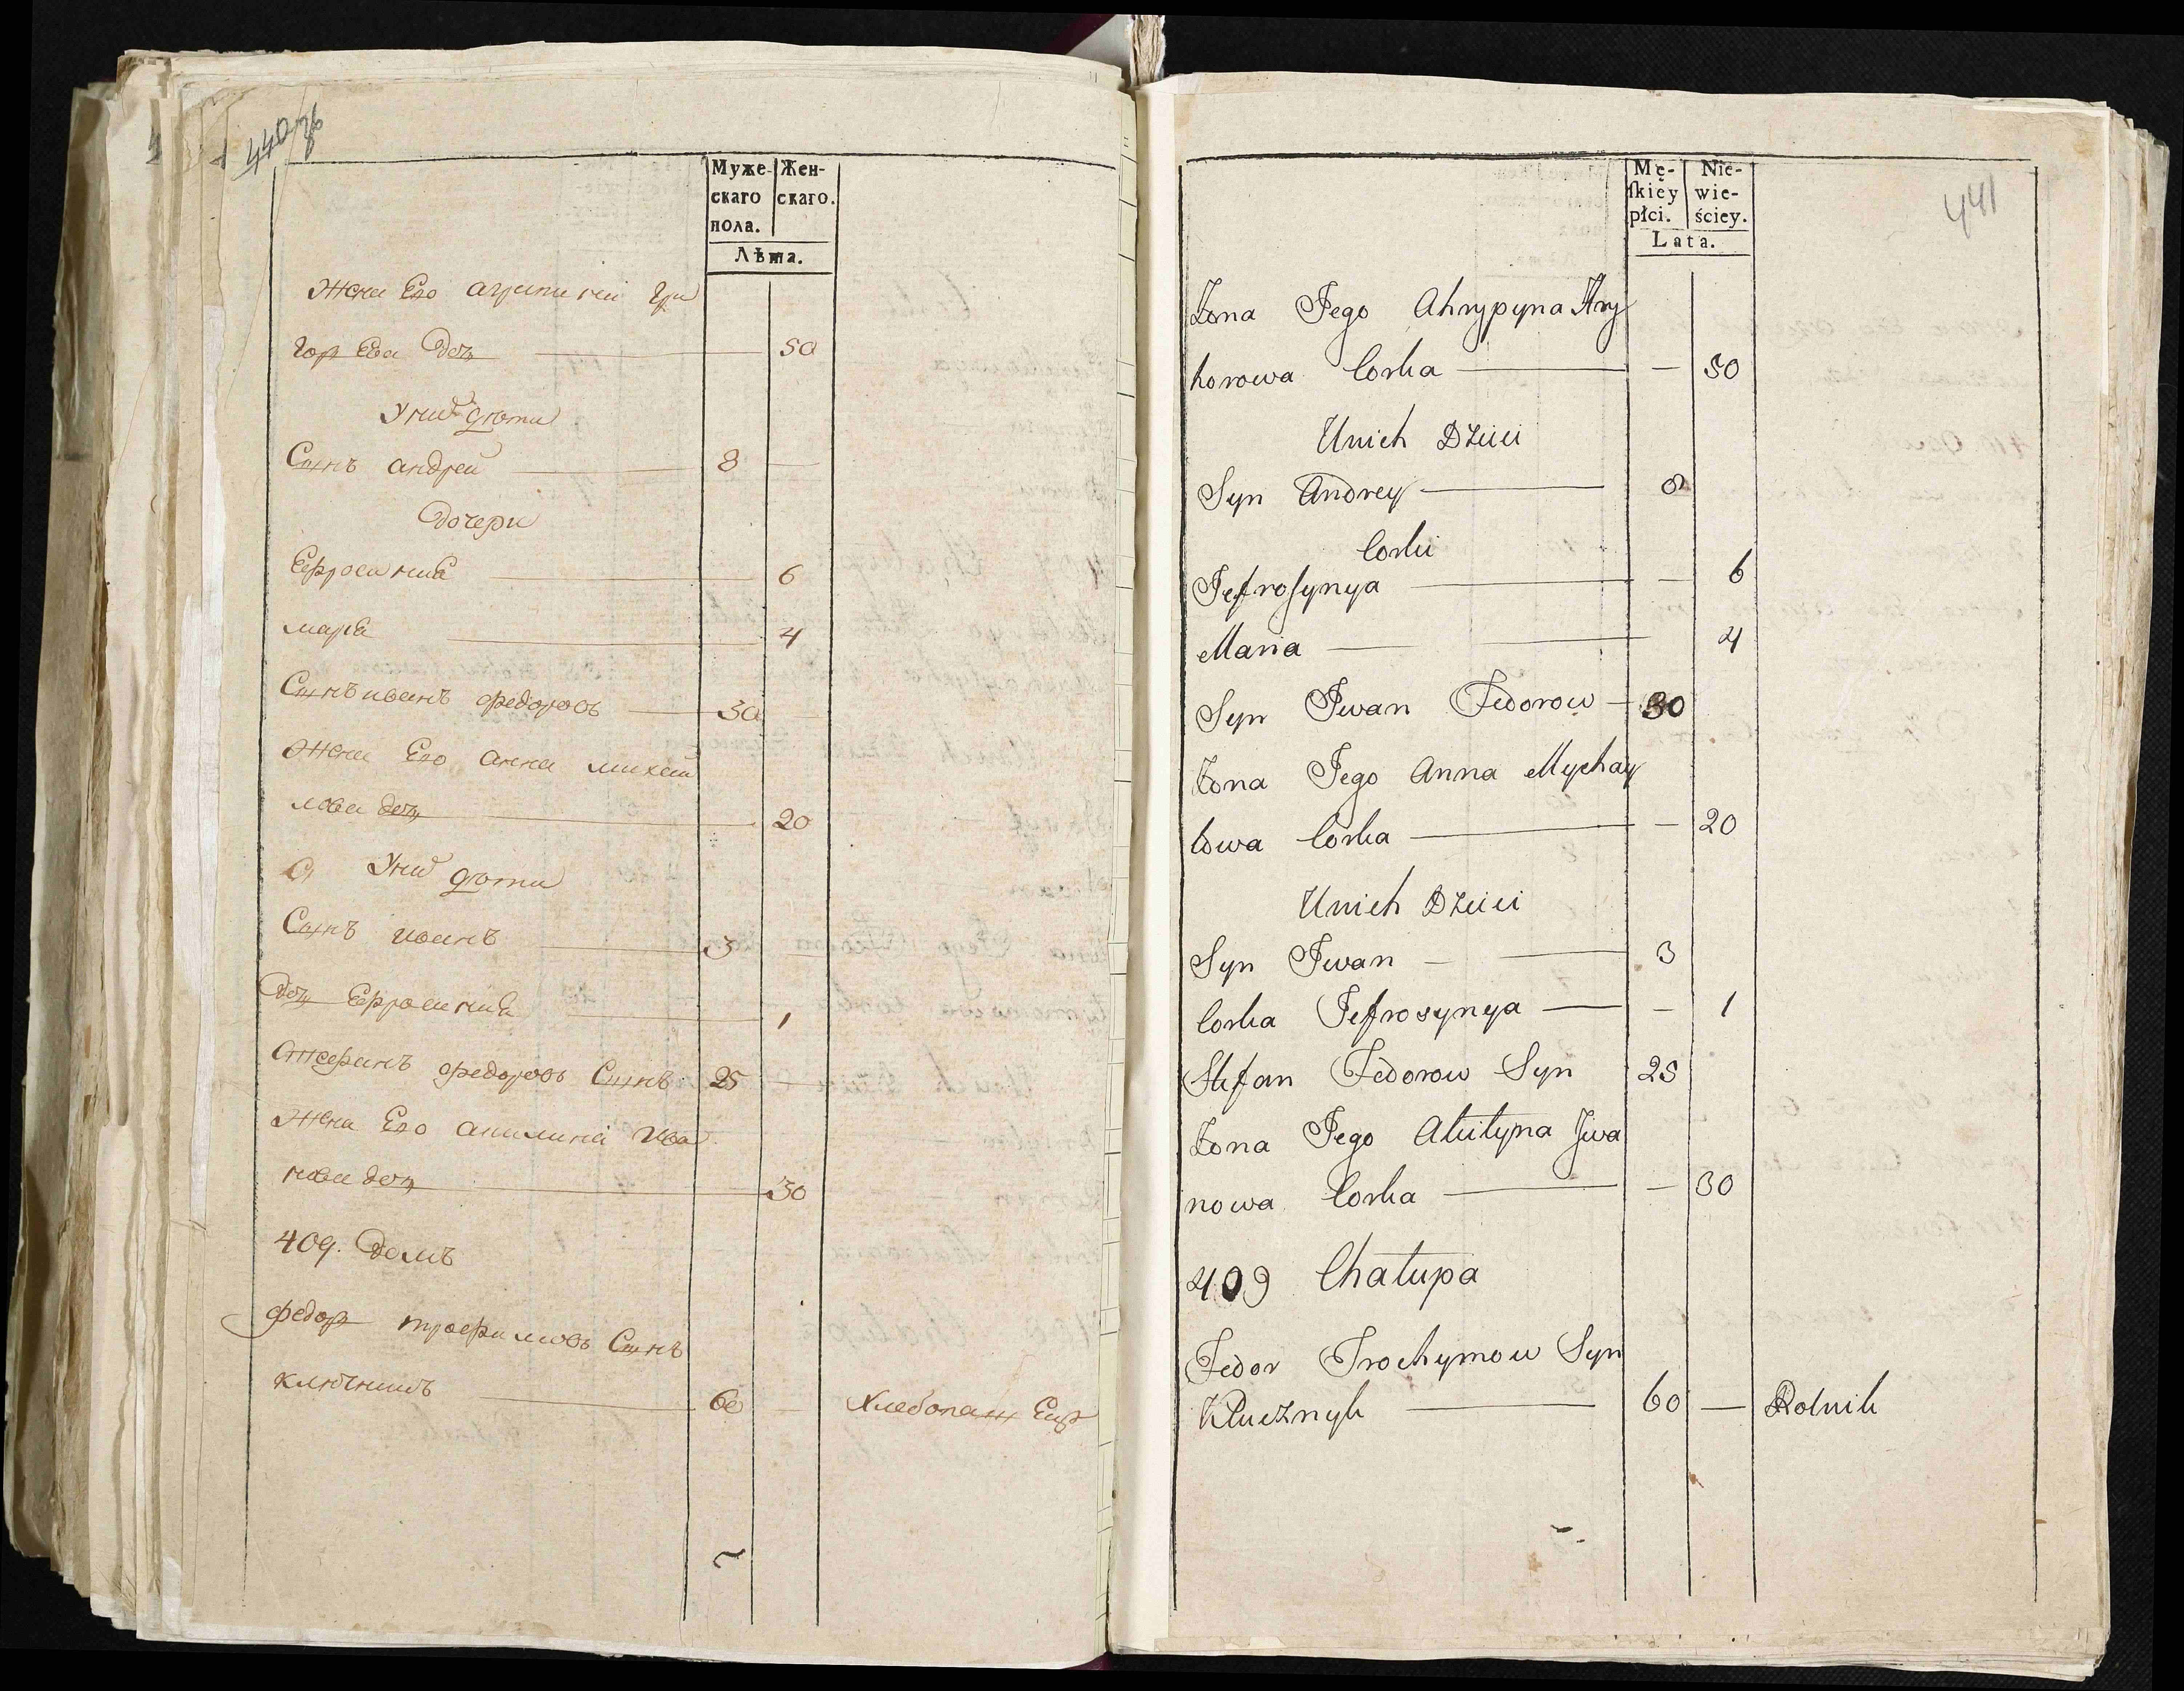 440 об
Муже-
скаго
пола.
Жен-
скаго.
Лѣта.
Жена Его агрипина Гри
горЕва Доч
У них дѣти
Сынъ андрей 8
Дочери
Ефросиния 6
мария 4
Сынъ иванъ федоровъ 30
Жена Его анна михай
лова доч 20
У них дѣти
Сынъ иванъ 3
Доч Ефросиния 1
Стефанъ федоровъ Сынъ 25
Жена Его Ива
нова доч 30
409. Домъ
федор трофимовъ Сынъ
ключникъ 60 Хлебопашец
441
Mę-
ſkiéy
płci.
Nie-
wie-
ściey.
Lata.
Żona Jego Ahrypyna Hry
horowa Corka — 50
Unich Dzieci
Syn Andrey 8
Corki
Jefroſynya — 6
Maria 4
Syn Jwan Fedorow 30
Żona Jego Anna Mychay
lowa Corka — 20
Unich Dzieci
Syn Jwan 3
Corka Jefrosynya — 1
Stefan Fedorow Syn 25
Żona Jego Akilyna Jwa
nowa Corka — 30
409 Chałupa
Fedor Trochymow Syn
Klucznyk 60 — Rolnik